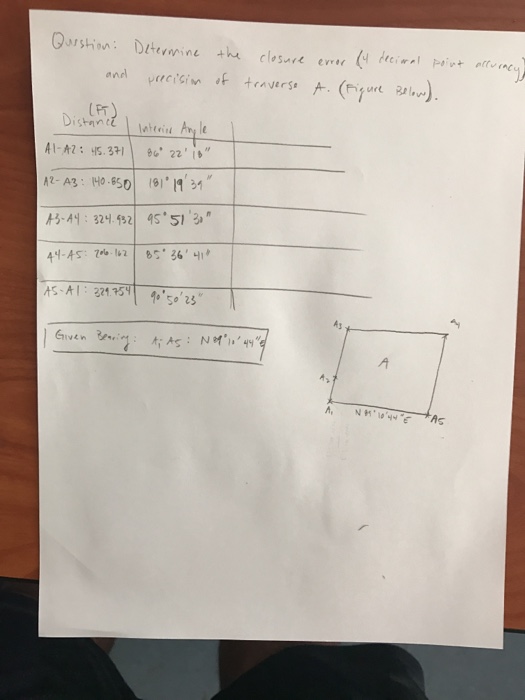 Question: Determine the closure error (4 decimal point accuracy)
and precision of traverse A. (Figure Below).
(FT)
Distance Interior Angle
A1-A2: 45.371 86° 22' 18"
A2-A3: 140.850 181° 19' 39"
A3-A4: 324.932 95° 51' 30"
A4-A5: 206.162 85° 36' 41"
A5-A1: 329.754 90° 50' 23"
Given Bearing: A1 A5: N 89° 10' 44" E
A3 A4
A
A2
A1 N 89° 10' 44" E A5